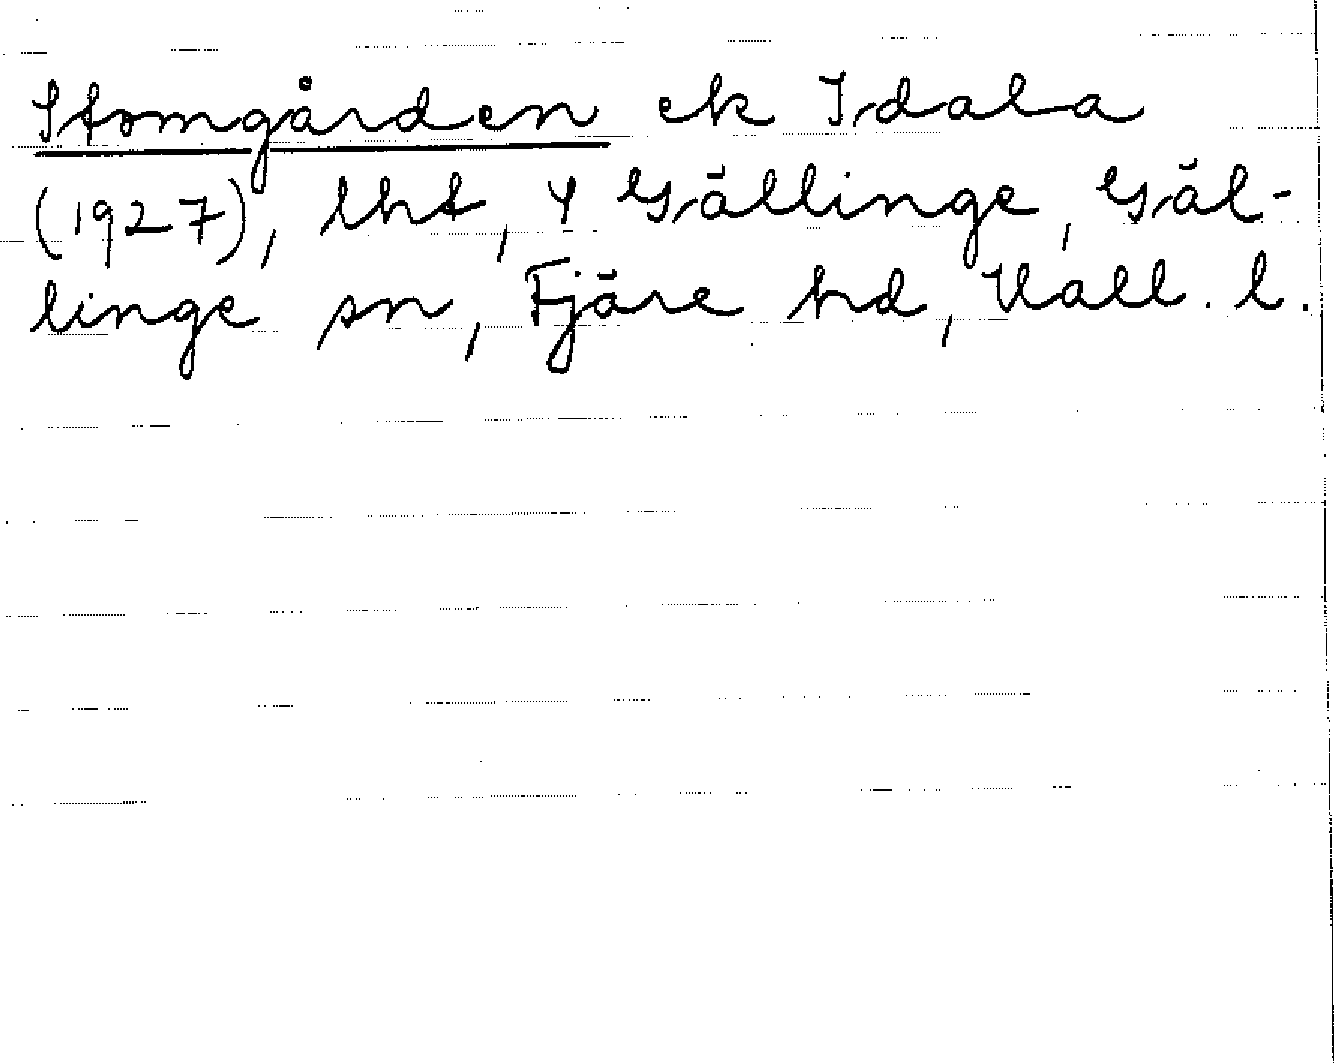 Stomgården el Idala
(1927), lht, 4 Gällinge, Gäl-
linge sn, Fjäre hd, Hall. l.